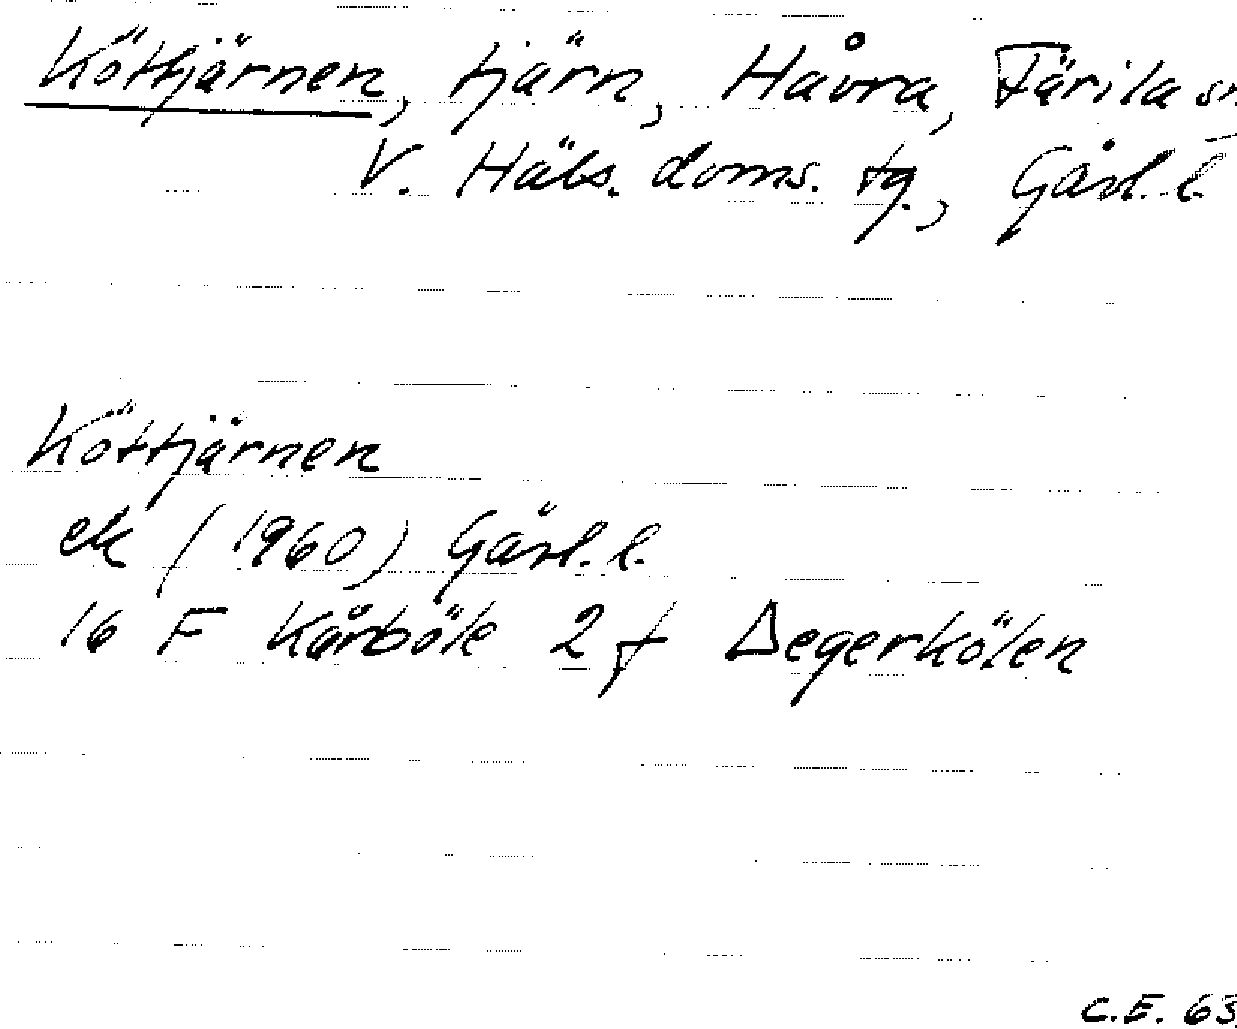 Köttjärnen, tjärn, Håvra, Färila sn.
V. Häls. doms. tg., Gävl. l.
Köttjärnen
ek (1960) Gävl. l.
16 F Kårböle 2 f Degerkölen
C.E. 63